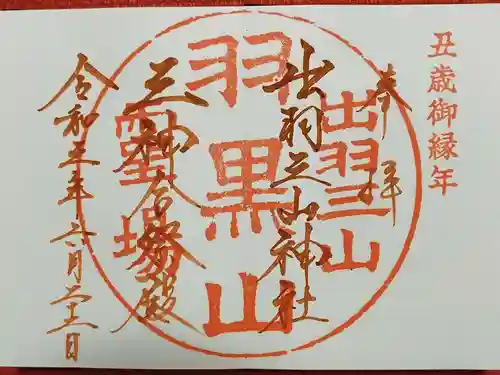 丑歳御縁年
奉拝
出羽三山
出羽三山神社
羽黒山
三神合祭殿
令和三年六月二十一日